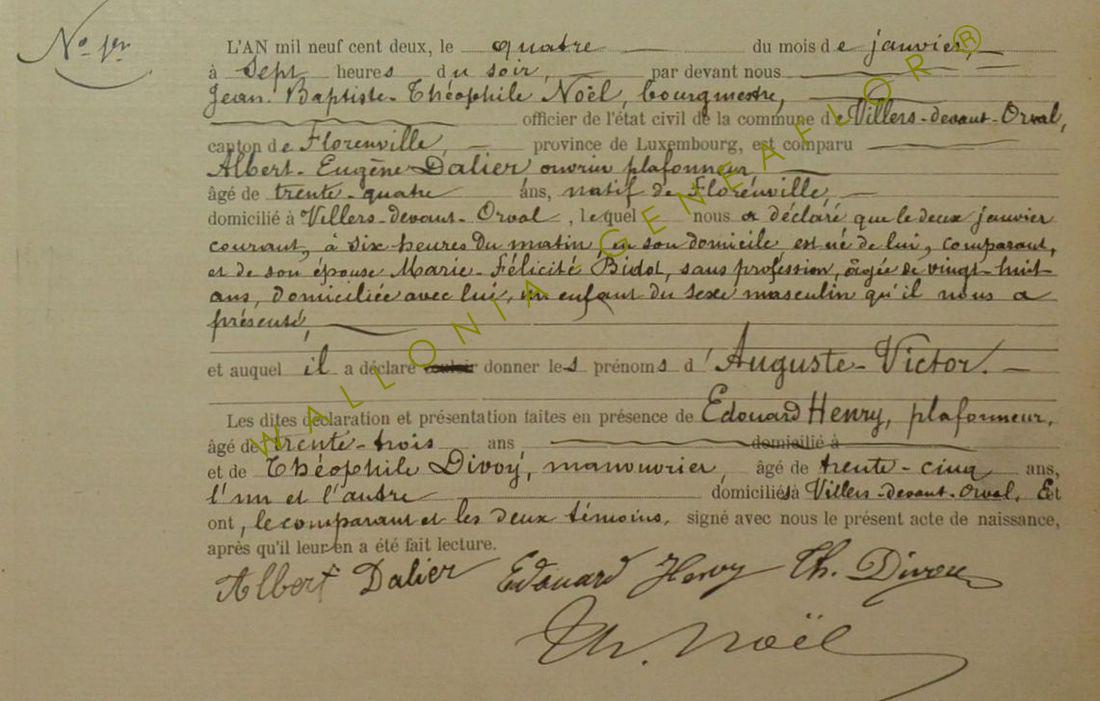 No 1er
L'AN mil neuf cent deux, le quatre du mois de janvier,
à Sept heures du soir, par devant nous
Jean-Baptiste-Théophile Noël, bourgmestre,
officier de l'état civil de la commune de Villers-devant-Orval,
canton de Florenville, province de Luxembourg, est comparu
Albert-Eugène Dalier ouvrier plafonneur,
âgé de trente-quatre ans, natif de Florenville,
domicilié à Villers-devant-Orval, lequel nous a déclaré que le deux janvier
courant, à six heures du matin, en son domicile est né de lui, comparant,
et de son épouse Marie-Félicité Bidot, sans profession, âgée de vingt-huit
ans, domiciliée avec lui, un enfant du sexe masculin qu'il nous a
présenté,
et auquel il a déclaré vouloir donner les prénoms d'Auguste-Victor.
Les dites déclaration et présentation faites en présence de Edouard Henry, plafonneur,
âgé de trente-trois ans domicilié à
et de Théophile Divoy, manouvrier, âgé de trente-cinq ans,
l'un et l'autre domiciliés à Villers-devant-Orval. Et
ont, le comparant et les deux témoins, signé avec nous le présent acte de naissance,
après qu'il leur en a été fait lecture.
Albert Dalier Edouard Henry Th. Divoy
Th. Noël
WALLONIA GENEAFLOR ®